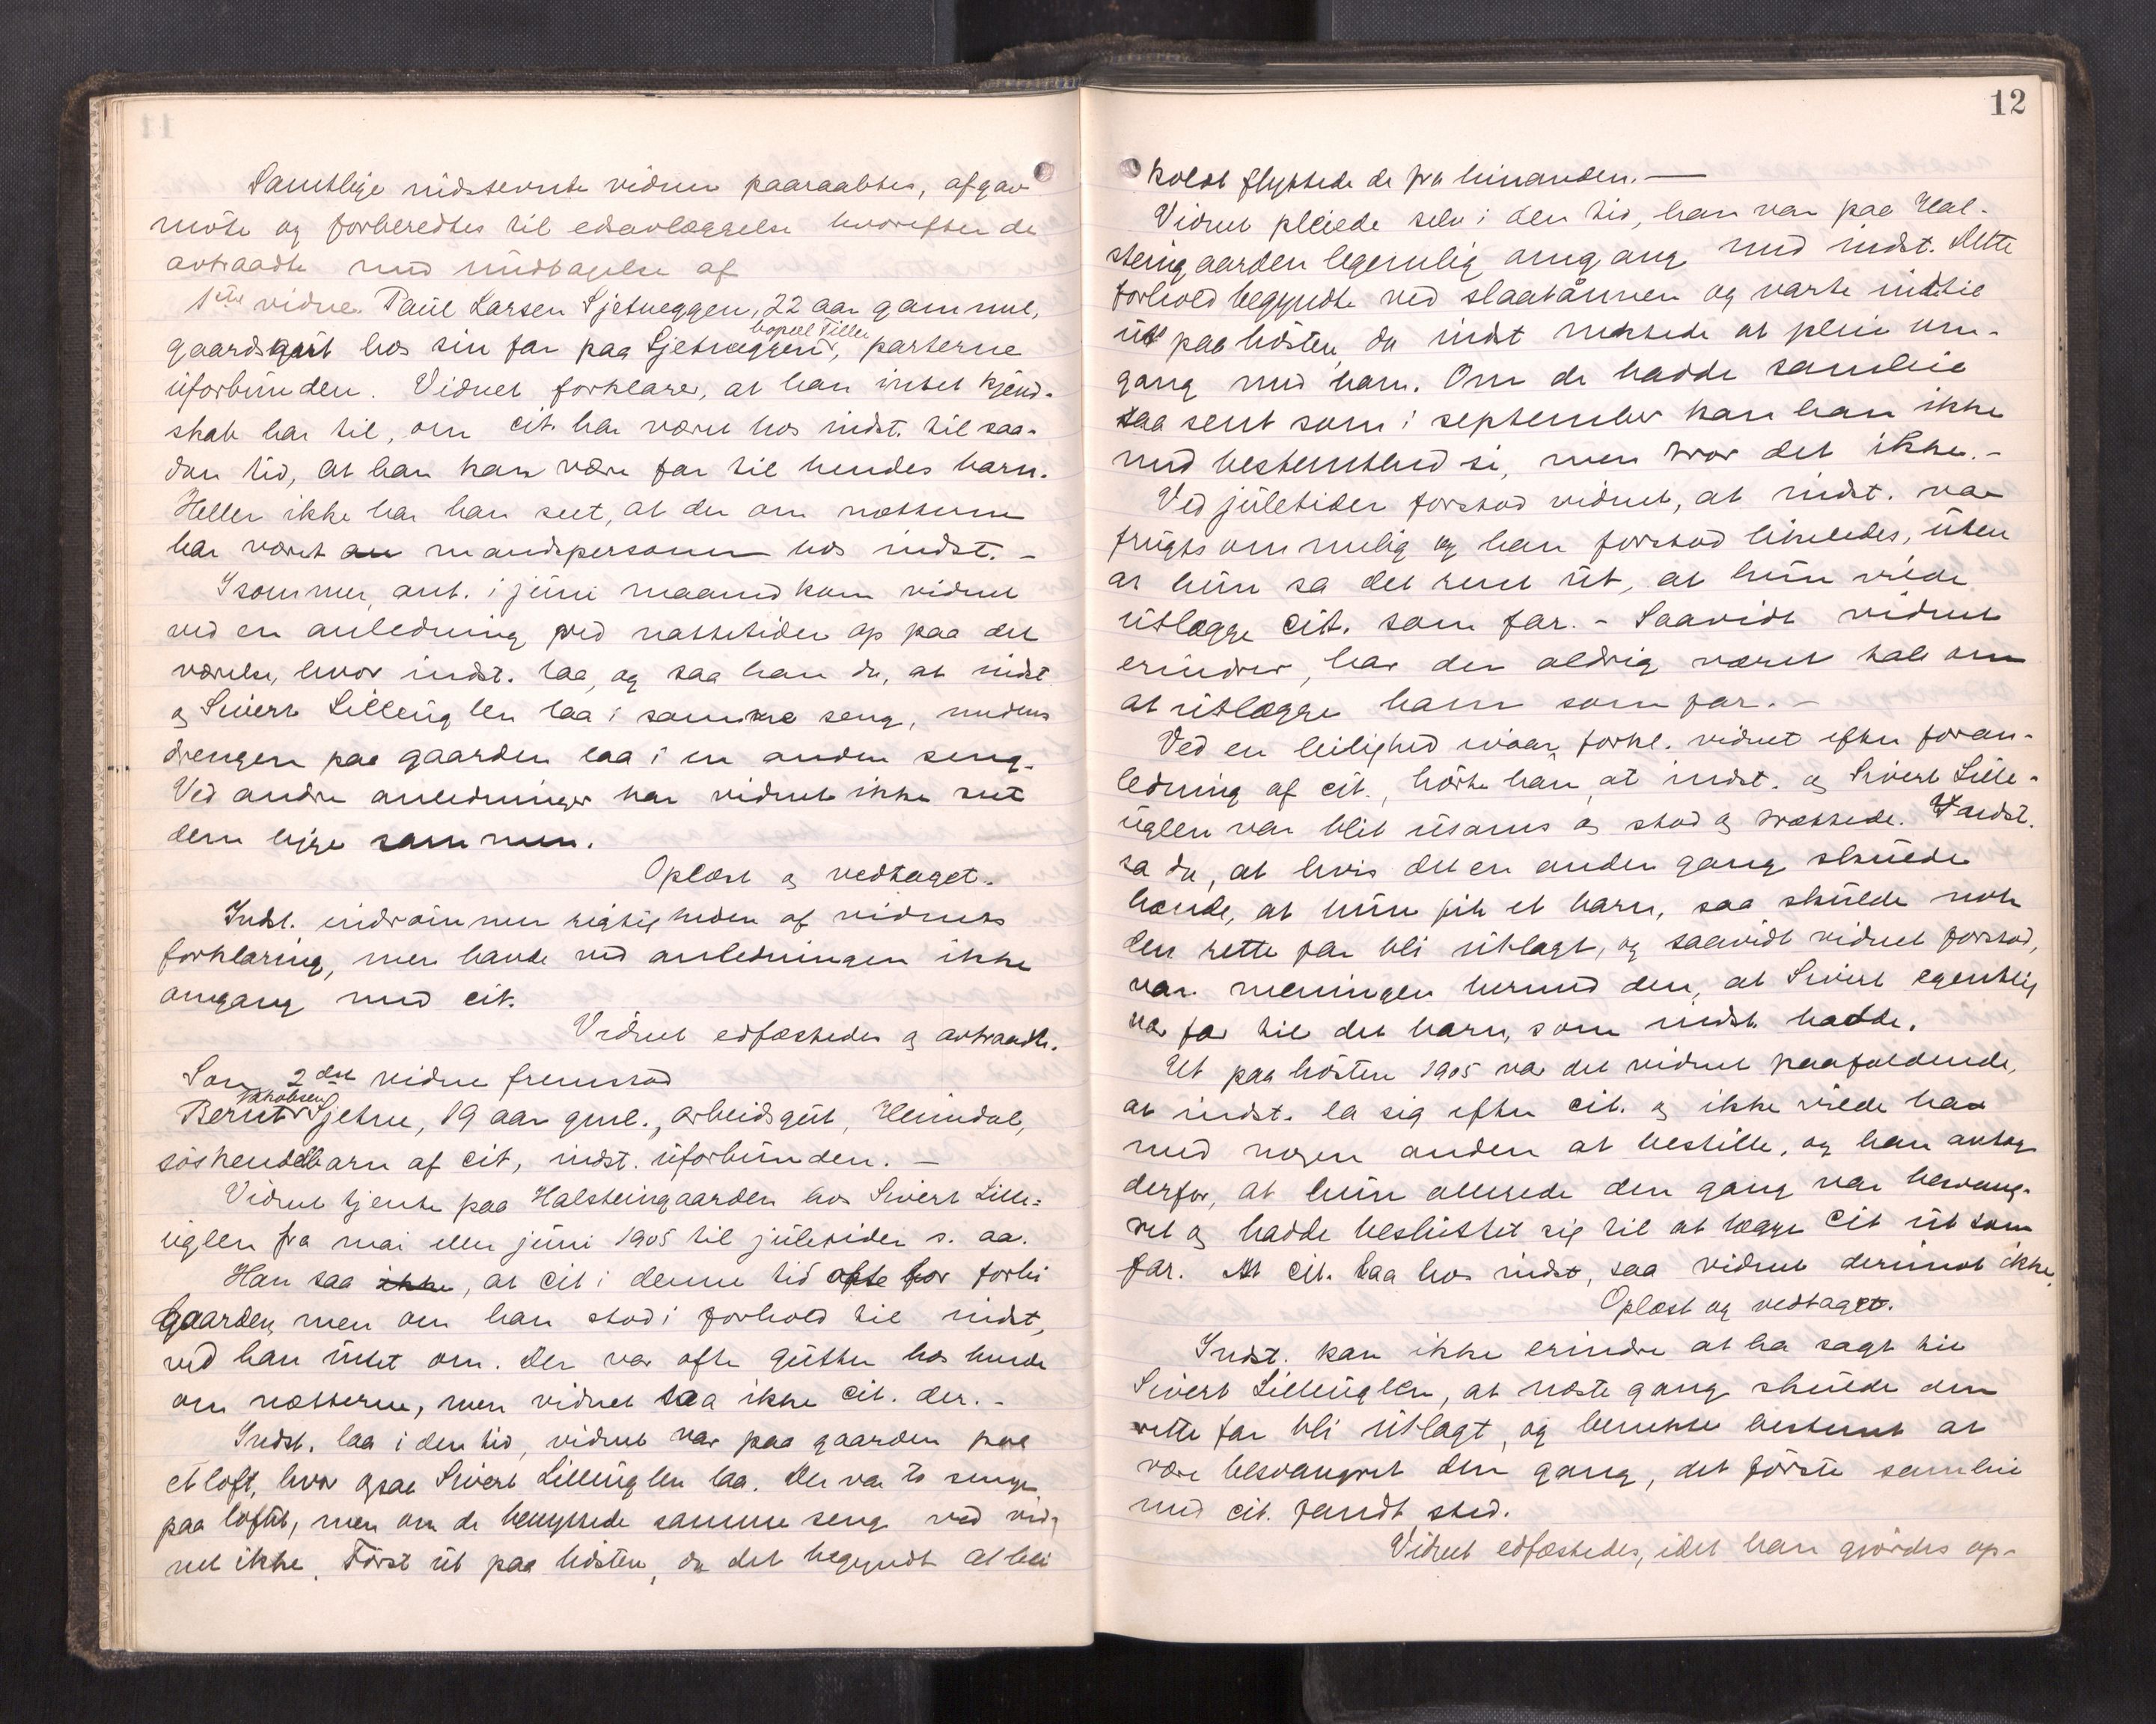 Samtlige indstevnte vidner paaraabtes, afgav
møte og forberedtes til edsavlæggelse hvorefter de
avtraadte med undtagelse af
1ste vidne. Paul Larsen Sjetneggen, 22 aar gammel,
bopæl Tiller
gaardsgut hos sin far paa Sjetneggen, parterne
uforbunden. Vidnet forklarer, at han intet kjend-
skab har til, om cit. har været hos indst. til saa-
dan tid, at han kan være far til hendes barn.
Heller ikke har han seet, at der om nætterne
har været mandspersoner hos indst. -
I sommer, ant. i juni maaned kom vidnet
ved en anledning ved nattetider op paa det
værelse, hvor indst. laa, og saa han da, at indst
og Sivert Lilleuglen laa i samme seng, medens
drengen paa gaarden laa i en anden seng.
Ved andre anledninger har vidnet ikke seet
dem ligge sammen.
Oplæst og vedtaget.
Indst. indrømmer rigtigheden af vidnets
forklaring, men havde ved anledningen ikke
omgang med cit.
Vidnet edfæstedes og avtraadte.
Som 2det vidne fremstod
Jakobsen
Bernt Sjetne, 19 aar gml., arbeidsgut, Heimdal,
søskendebarn af cit, indst. uforbunden. -
Vidnet tjente paa Halsteingaarden hos Sivert Lille-
uglen fra mai eller juni 1905 til juletider s. aa.
Han saa ikke, at cit i denne tid ofte for forbi
gaarden, men om han stod i forhold til indst,
ved han intet om. Der var ofte gutter hos hende
om nætterne, men vidnet saa ikke cit. der. -
Indst. laa i den tid, vidnet var paa gaarden paa
et loft, hvor ogsaa Sivert Lilleuglen laa. Der var to senge
paa loftet, men om de benyttede samme seng ved vid-
net ikke. Først ut paa høsten, da det begyndte at bli
12
koldt flyttede de fra hinanden. -
Vidnet pleiede selv i den tid, han var paa Hal-
steingaarden legemlig omgang med indst. Dette
forhold begyndte ved slaatånnen og varte indtil
ut paa høsten, da indst nektede at pleie om-
gang med ham. Om de hadde samleie
saa sent som i september kan han ikke
med bestemthed si, men tror det ikke. -
Ved juletider forstod vidnet, at indst. var
frugtsommelig og han forstod likeledes, uten
at hun sa det rent ut, at hun vilde
utlægge cit. som far. - Saavidt vidnet
erindrer, har der aldrig været tale om
at utlægge ham som far. -
Ved en leilighed ivaar, forkl. vidnet efter foran-
ledning af cit., hørte han, at indst. og Sivert Lille-
uglen var blit usams og stod og trættede. Indst.
sa da, at hvis det en anden gang skulde
hænde, at hun fik et barn, saa skulde nok
den rette far bli utlagt, og saavidt vidnet forstod,
var meningen hermed den, at Sivert egentlig
var far til det barn, som indst. hadde.
Ut paa høsten 1905 var det vidnet paafaldende,
at indst. la sig efter cit. og ikke vilde ha
med nogen anden at bestille, og han antog
derfor, at hun allerede den gang var besvang-
ret og hadde besluttet sig til at lægge cit ut som
far. At cit. laa hos indst, saa vidnet derimot ikke.
Oplæst og vedtaget.
Indst. kan ikke erindre at ha sagt til
Sivert Lilleuglen, at næste gang skulde den
rette far bli utlagt, og benekter bestemt at
være besvangret den gang, det første samleie
med cit. fandt sted.
Vidnet edfæstedes, idet han gjordes op-